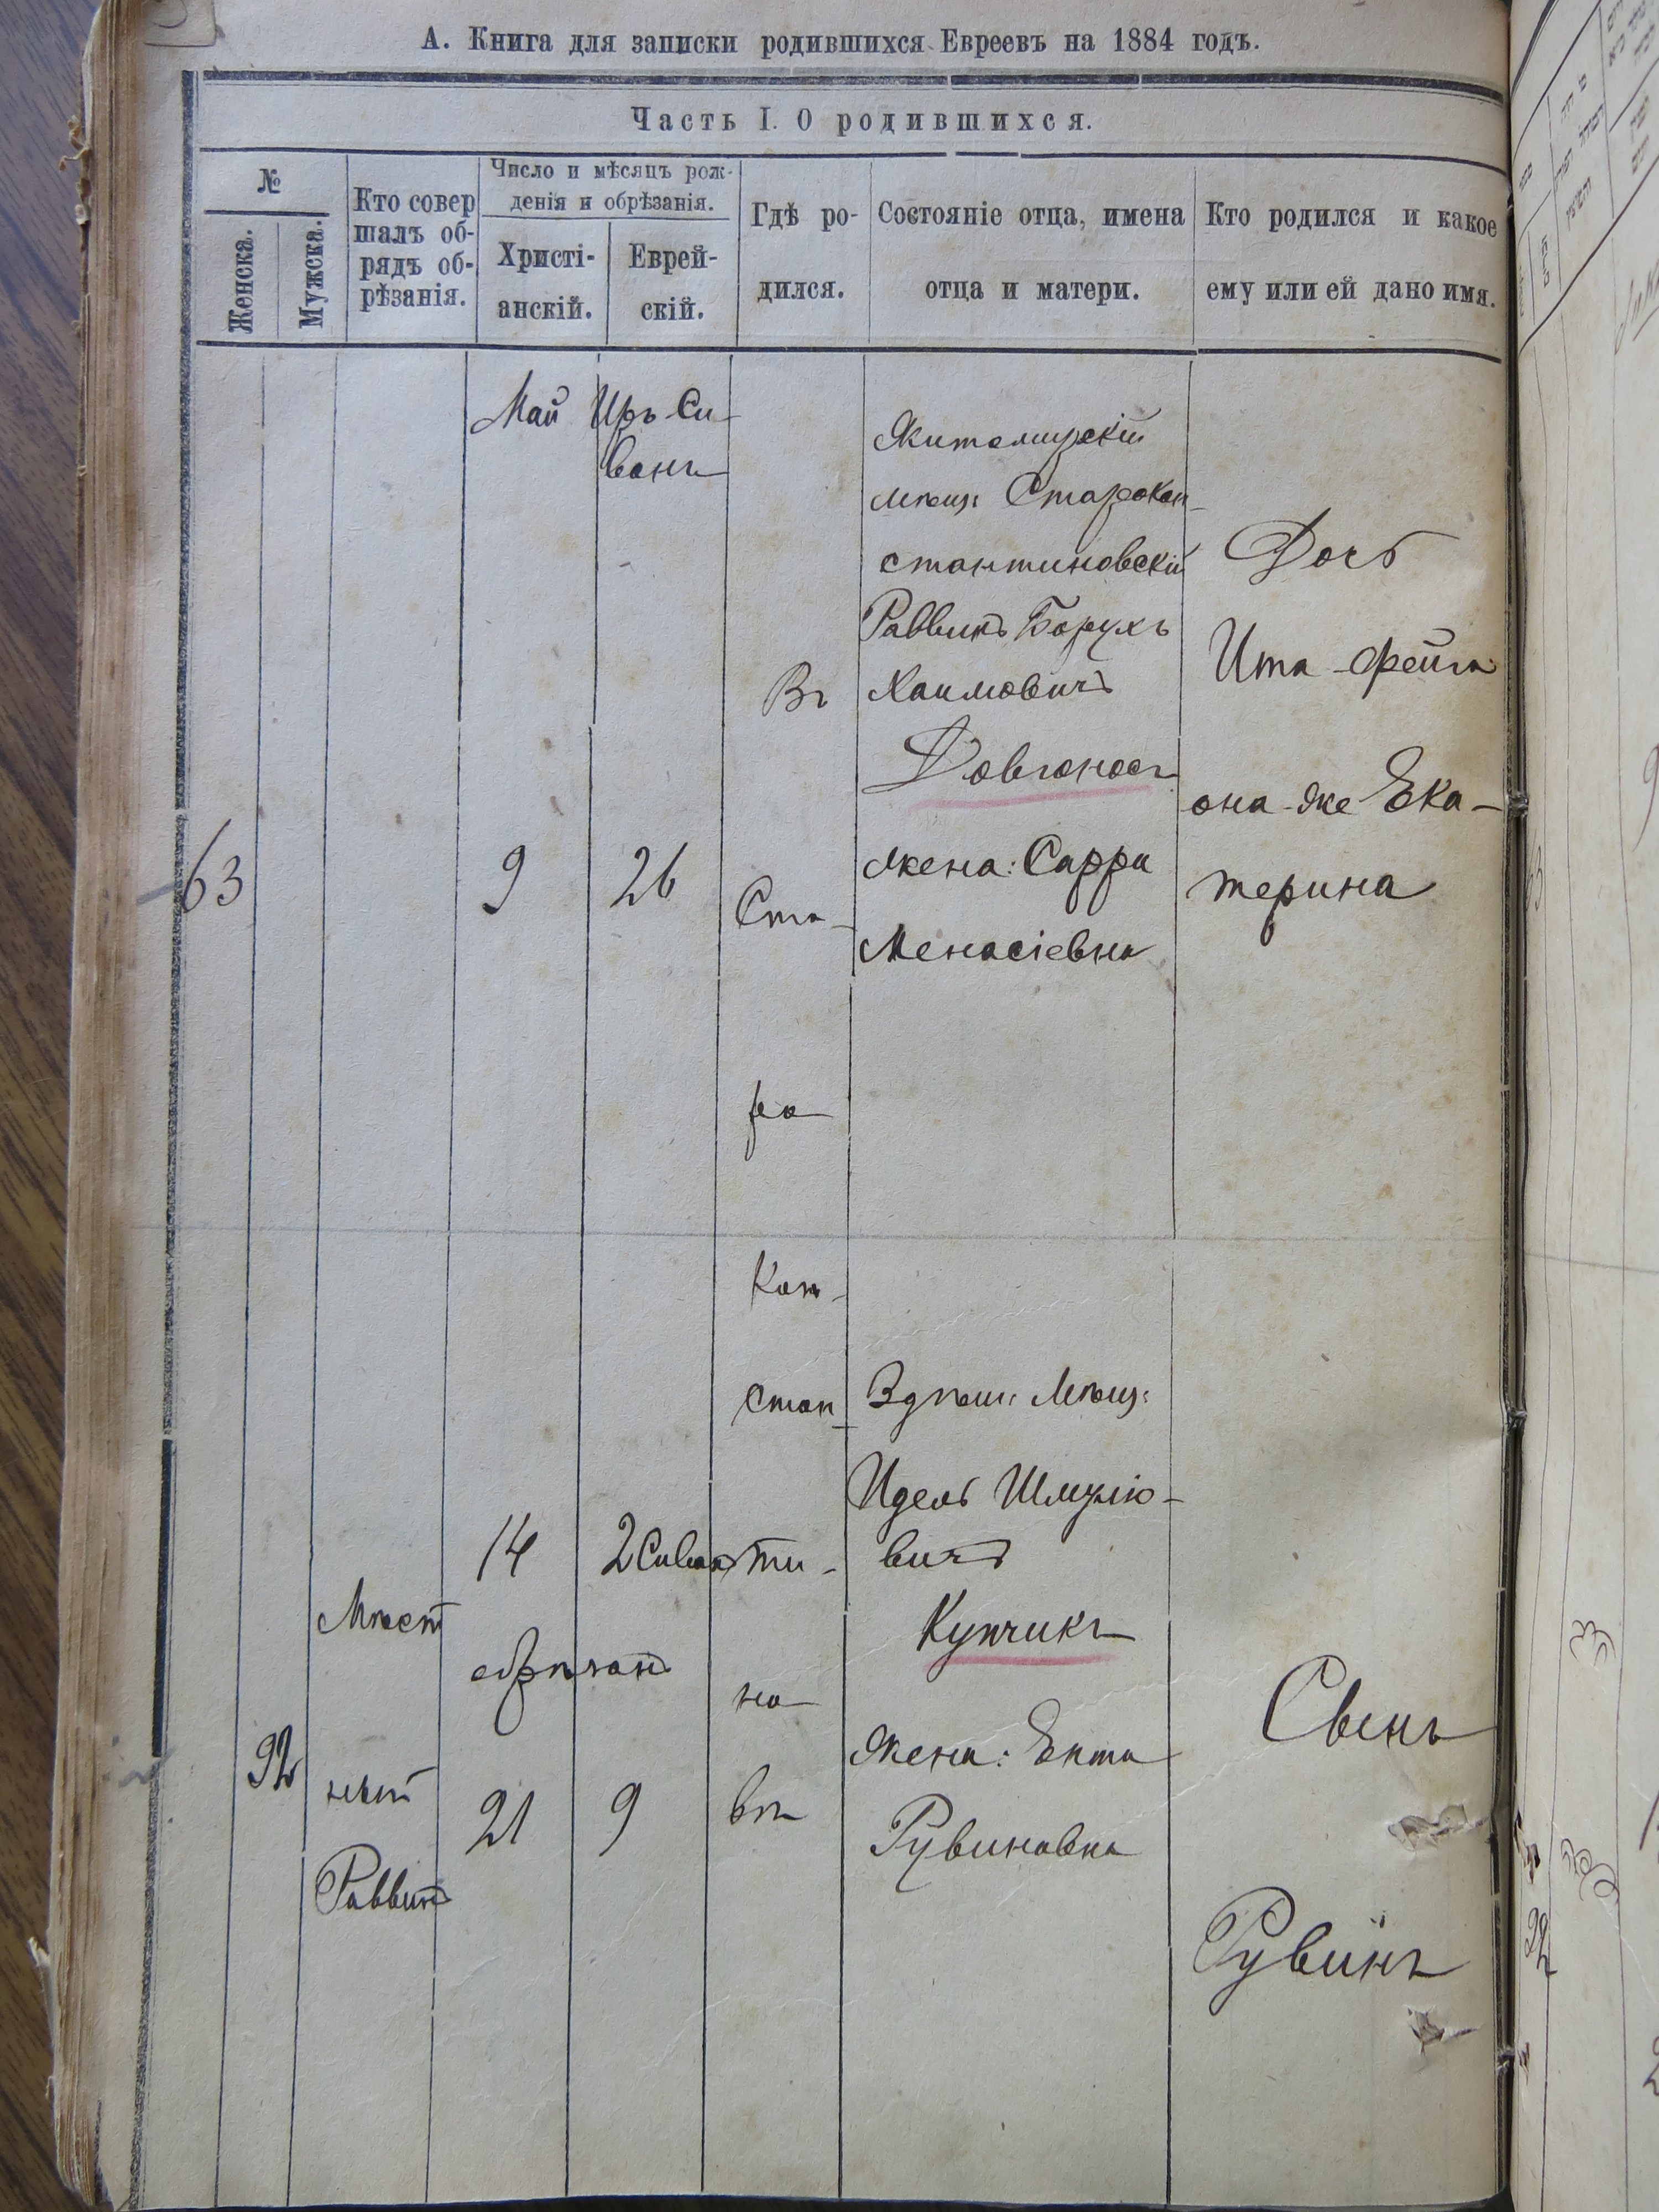 А. Книга для записки родившихся Евреевъ на 1884 годъ.
Часть I. О родившихся.
№
Женска.
Мужска.
Кто совер
шалъ об-
рядъ об-
рѣзанія.
Число и мѣсяцъ рож-
денія и обрѣзанія.
Христі-
анскій.
Еврей-
скій.
Гдѣ ро-
дился.
Состояніе отца, имена
отца и матери.
Кто родился и какое
ему или ей дано имя.
Май
Иръ-Си-
ванъ
63
9
26
Въ
Ста-
ро
Кон-
стан-
ти-
но
вѣ
Житомирскій
мѣщ: Старокон-
стантиновскій
Раввинъ Борухъ
Хаимовичъ
Довгоносъ
жена: Сарра
Менасіевна
Дочь
Ита-Фейга
она-же Ека-
терина
92
Мѣст
ный
Раввинъ
14
2 Сиванъ
обрѣзанъ
21
9
Здѣш: Мѣщ:
Идель Шмулю-
вичъ
Купчикъ
Жена: Ента
Рувиновна
Сынъ
Рувинъ